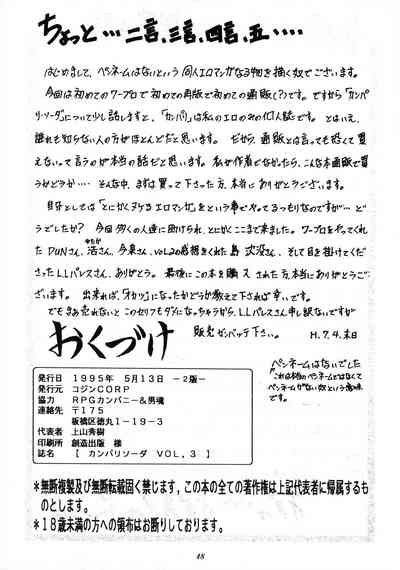 ちょっと…二言、三言、四言、五‥‥
はじめまして、ペンネームはないという同人エロマンガなる物を描く奴でございます。
今回は初めてのワープロで初めての再版で初めての通販(?)です。ですから「カンパ
リソーダ」について少し話しますと、「カンパリ」は私のエロのみの個人誌です。とはいえ、
誰れも知らない人の方がほとんどだと思います。だから、通販とは言っても恐くて買
えないって言うのが本当の話だと思います。私が作者でなかったら、こんな本通販で買
うかどうか‥‥そんな中、まずは買って下さった方、本当にありがとうございます。
自分としては「とにかくヌケるエロマンガ」をという事でやってるつもりなのですが…ど
うでしたか? 今回多くの人達に助けられ、とにかくここまで来ました。ワープロをやってくれ
たDUNさん、浩さん、今泉さん、vol.2の感想をくれた島 次郎さん、そして目を掛けてくだ
さったLLパレスさん、ありがとう。最後にこの本を購入された方、本当にありがとうござ
います。出来れば、「オカツ」になったかどうか教えて下されば幸いです。
でもまあ売れないとこのセリフもダメになっちゃうから、LLパレスさん申し訳ないですが
販売ガンバッテ下さい。 H.7.4.末日
おくづけ
ペンネームはないでした
"これは本当のペンネームではなくて
ペンネームがない奴という意味
です。
発行日 1995年 5月13日 −2版−
発行元 コジンCORP
協力 RPGカンパニー&男魂
連絡先 〒175
板橋区徳丸1−19−3
代表者 上山秀樹
印刷所 創造出版 様
誌名 【 カンパリソーダ VOL,3 】
*無断複製及び無断転載固く禁じます,この本の全ての著作権は上記代表者に帰属するも
のとします。
*18歳未満の方への領布はお断りしております。
48